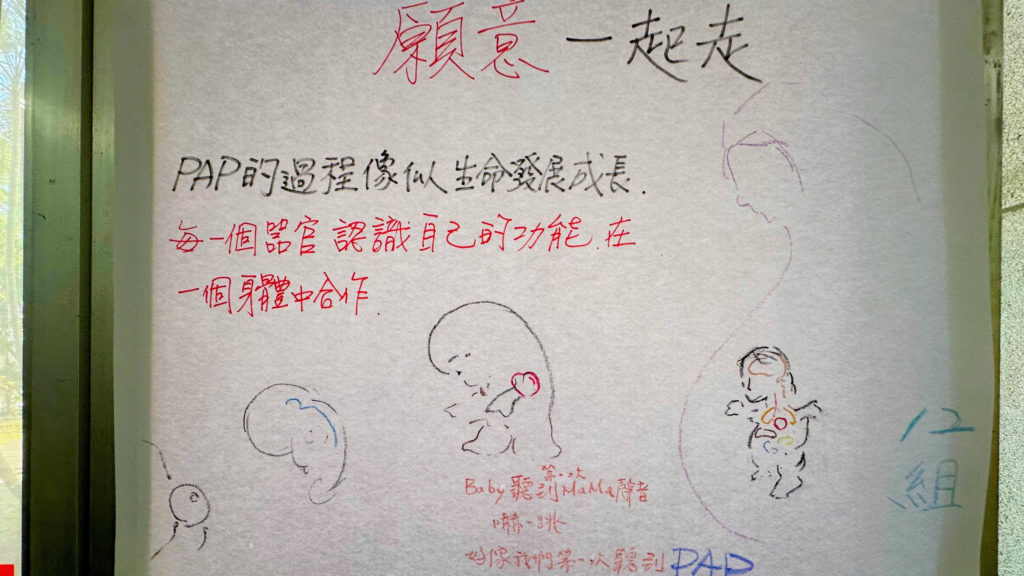 願意一起走
PAP的過程像似生命發展成長.
每一個器官認識自己的功能.在
一個身體中合作.
Baby第一次聽到MaMa聲音
嚇一跳
好像我們第一次聽到PAP
12
組